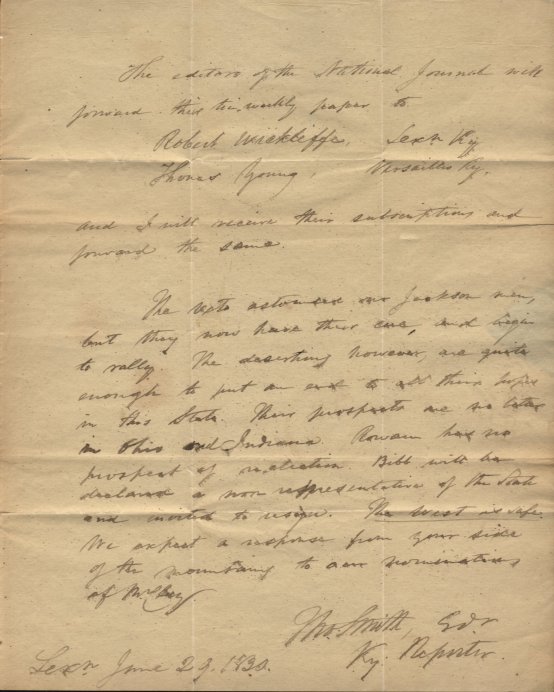 The editors of the National Journal will
forward this tri weekly paper to
Robert Wickliffe, Lexn Ky
Thomas Young, Versailles Ky.
and I will receive their subscriptions and
forward the same.
The veto astounded our Jackson men,
but they now have their cue, and begin
to rally. The deserting however, are quite
enough to put an end to all their hopes
in this State. Their prospects are no better
in Ohio and Indiana. Rowan has no
prospect of reelection. Bibb will be
declared a non representative of the State
and invited to resign. The West is safe.
We expect a response from your side
of the mountains to our nomination
of Mr Clay
Tho. Smith Edr
Ky. Reporter.
Lexn June 29, 1830.